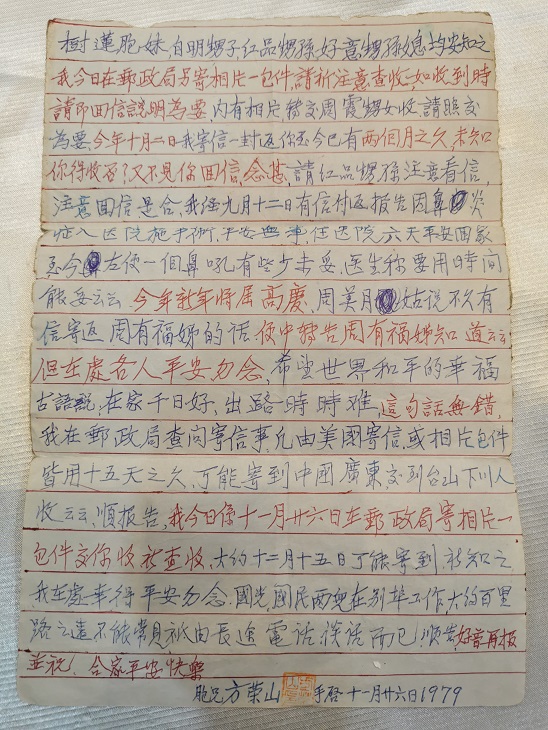 樹蓮胞妹,自明甥子,紅品甥孫,好意甥孫媳均安知之
我今日在郵政局另寄相片一包件,請祈注意查收,如收到時
請即回信說明為要 內有相片,轉交周霞甥女收,請照交
為要,今年十月二日我寄信一封返你至今已有兩個月之久,未知
你得收否?又不見你回信,念甚,請紅品甥孫注意看信,
注意回信是合,我經九月十二日有信付返报告因鼻炎
症入医院施手術,平安無事,住医院六天平安回家
至今左便一個鼻吼有些少未妥,医生称要用日時間
能妥云云 今年新年将届高慶,周美月姑说不久有
信寄返 周有福娣的话,便中转告周有福娣知道云云
但在處各人平安勿念,希望世界和平的幸福
古語說,在家千日好,出路時時难,這句話無错,
我在郵政局查问寄信事,凡由美國寄信,或相片包件
皆用十五天之久,了能寄到中國廣東交到台山下川人
收云云,順报告,我今日係十一月廿六日在郵政局寄相片一
包件交你收祈查收,大約十二月十五日了能寄到,祈知之
我在處幸得平安勿念,國光國民兩兒在别埠工作,大約百里
路之遠不能常見祇由長途電話談话而已!順告,好音再报
並祝!合家平安快樂
胞兄方榮山 手啓 十一月廿六日1979